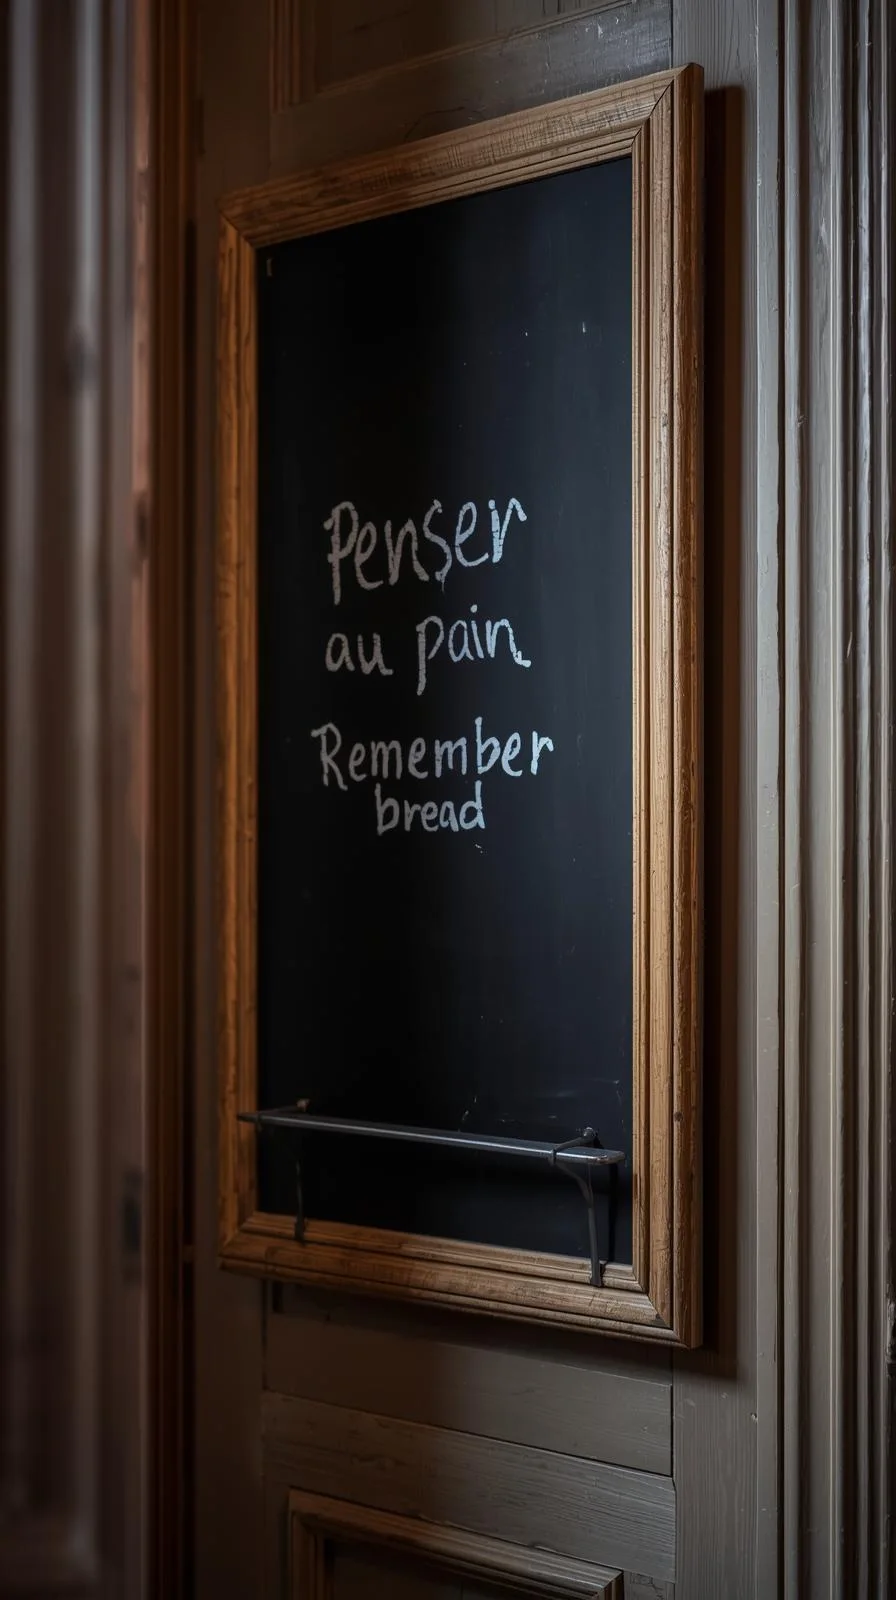 Penser
au pain
Remember
bread